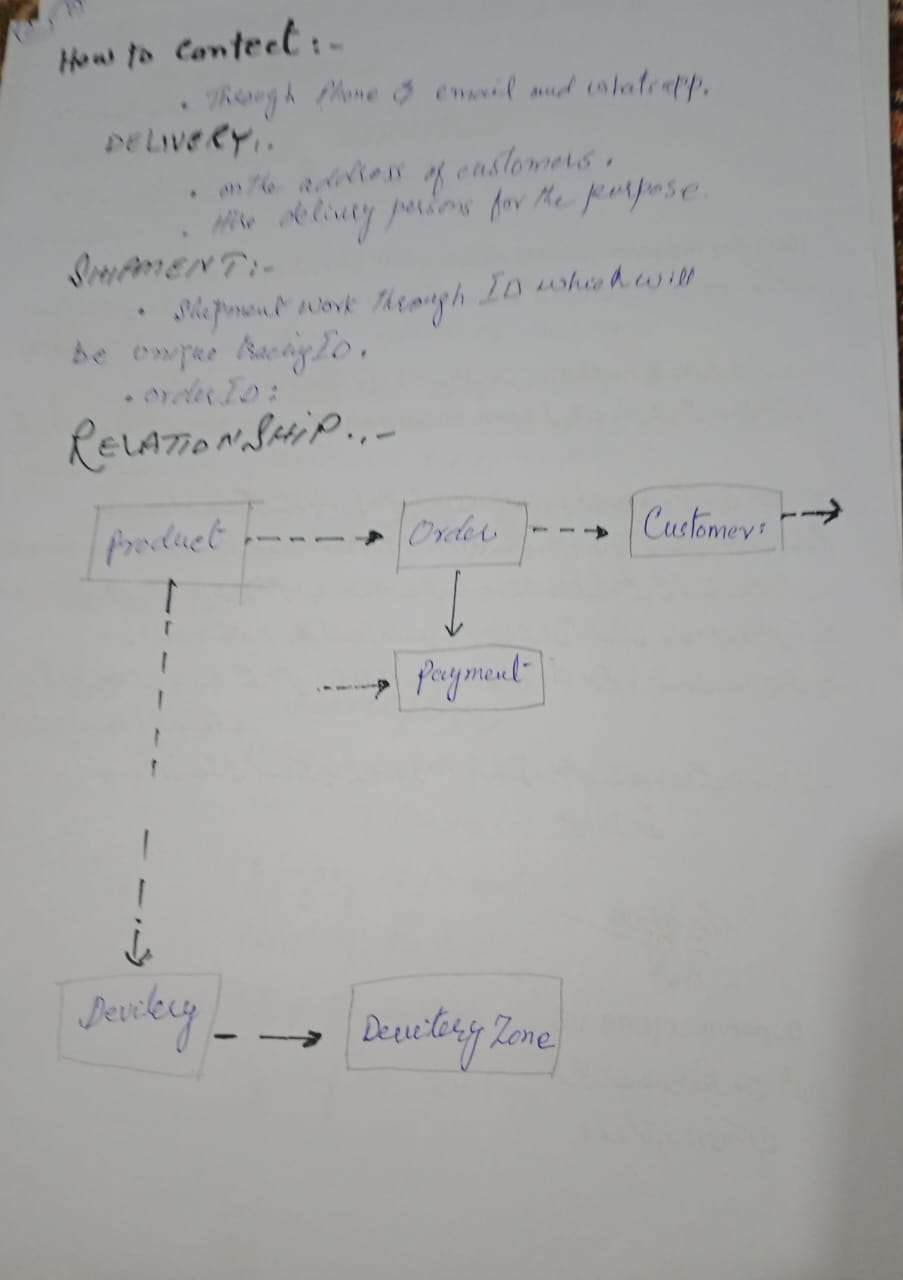 How to Contect :-
• Through Phone & email and whatsapp.
DELIVERY:.
• on the address of customers.
• Hire delivey persons for the purpose.
SHIPMENT:-
• Shipment work Through ID which will
be unique tracing ID.
• order ID:
RELATIONSHIP..-
Product
Order
Customers
Payment
Devilery
Devilery Zone